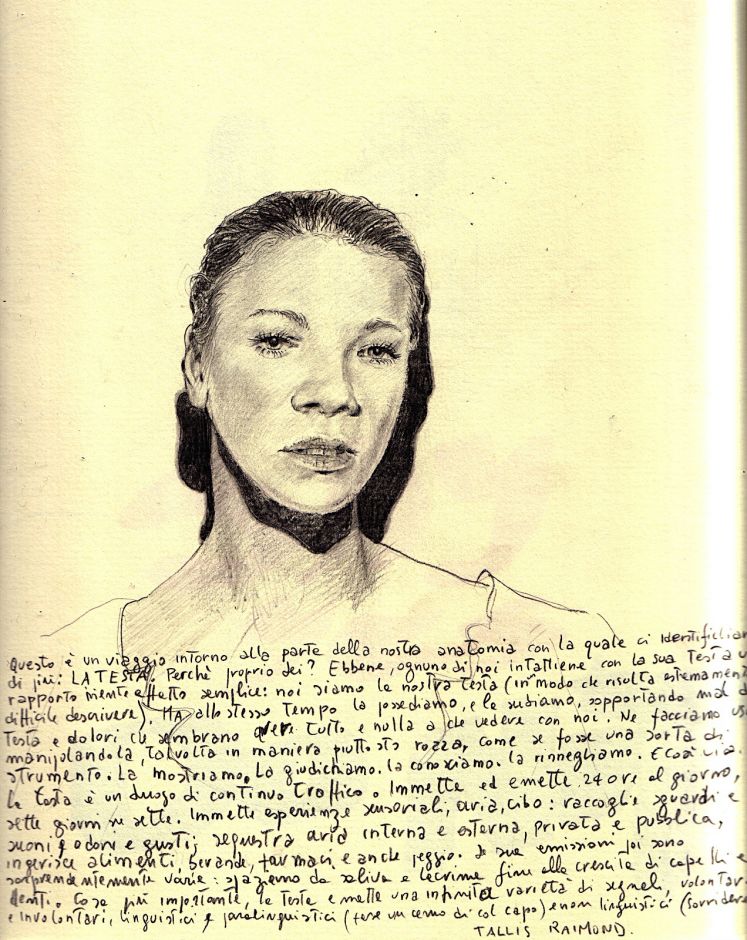 Questo è un viaggio intorno alla parte della nostra anatomia con la quale ci identifichiam
di più: LA TESTA. Perchè proprio lei? Ebbene, ognuno di noi intattiene con la sua testa u
rapporto niente affatto semplice: noi siamo la nostra testa (in modo che risulta estremament
difficile descrivere). MA allo stesso tempo la possediamo, e la subiamo, sopportando mal d
testa e dolori che sembrano avere tutto e nulla a che vedere con noi. Ne facciamo us
manipolandola, talvolta in maniera piuttosto rozza, come se fosse una sorta di
strumento. La mostriamo. La giudichiamo. la conosciamo. la rinneghiamo. E così via.
la testa è un luogo di continuo traffico. Immette ed emette 24 ore al giorno,
sette giorni su sette. Immette esperienze sensoriali, aria, cibo: raccoglie sguardi e
suoni e odori e gusti; sequestra aria interna e esterna, privata e pubblica,
ingerisce alimenti, bevande, farmaci e anche peggio. Le sue emissioni poi sono
sorprendentemente varie: spaziano da saliva e lacrime fino alla crescita di capelli e
denti. Cosa più importante, la testa emette una infinita varietà di segnali, volontar
e involontari, linguistici e paralinguistici (fare un cenno di col capo) e non linguistici (sorridere
TALLIS RAIMOND.